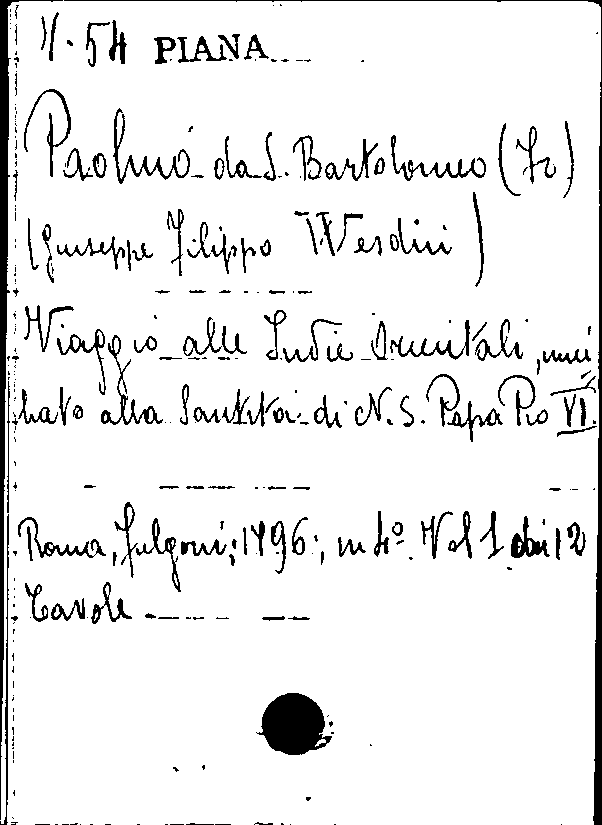 V. 54 PIANA
Paolino da S. Bartolomeo (Fr)
(Giuseppe Filippo Wesdin)
Viaggio alle Indie Orientali, umi
liato alla Santità di N. S. Papa Pio VI.
Roma, Fulgoni, 1796, in 4º. Vol 1 con 12
Tavole